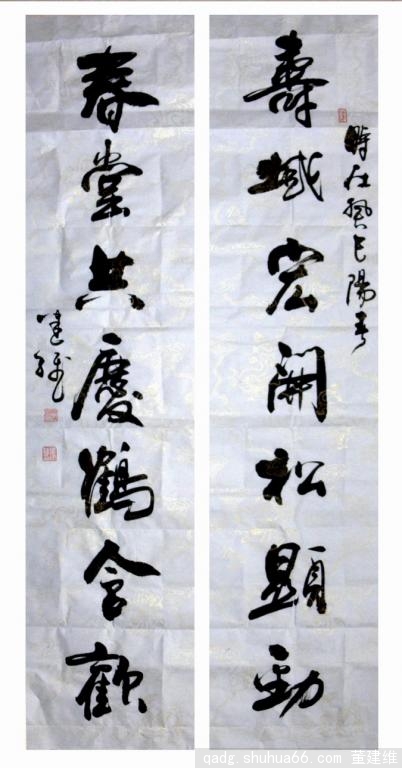 時在癸巳陽春
壽域宏開松顯勁
春堂共慶鶴含歡
建維
qadg.shuhua66.com 董建维